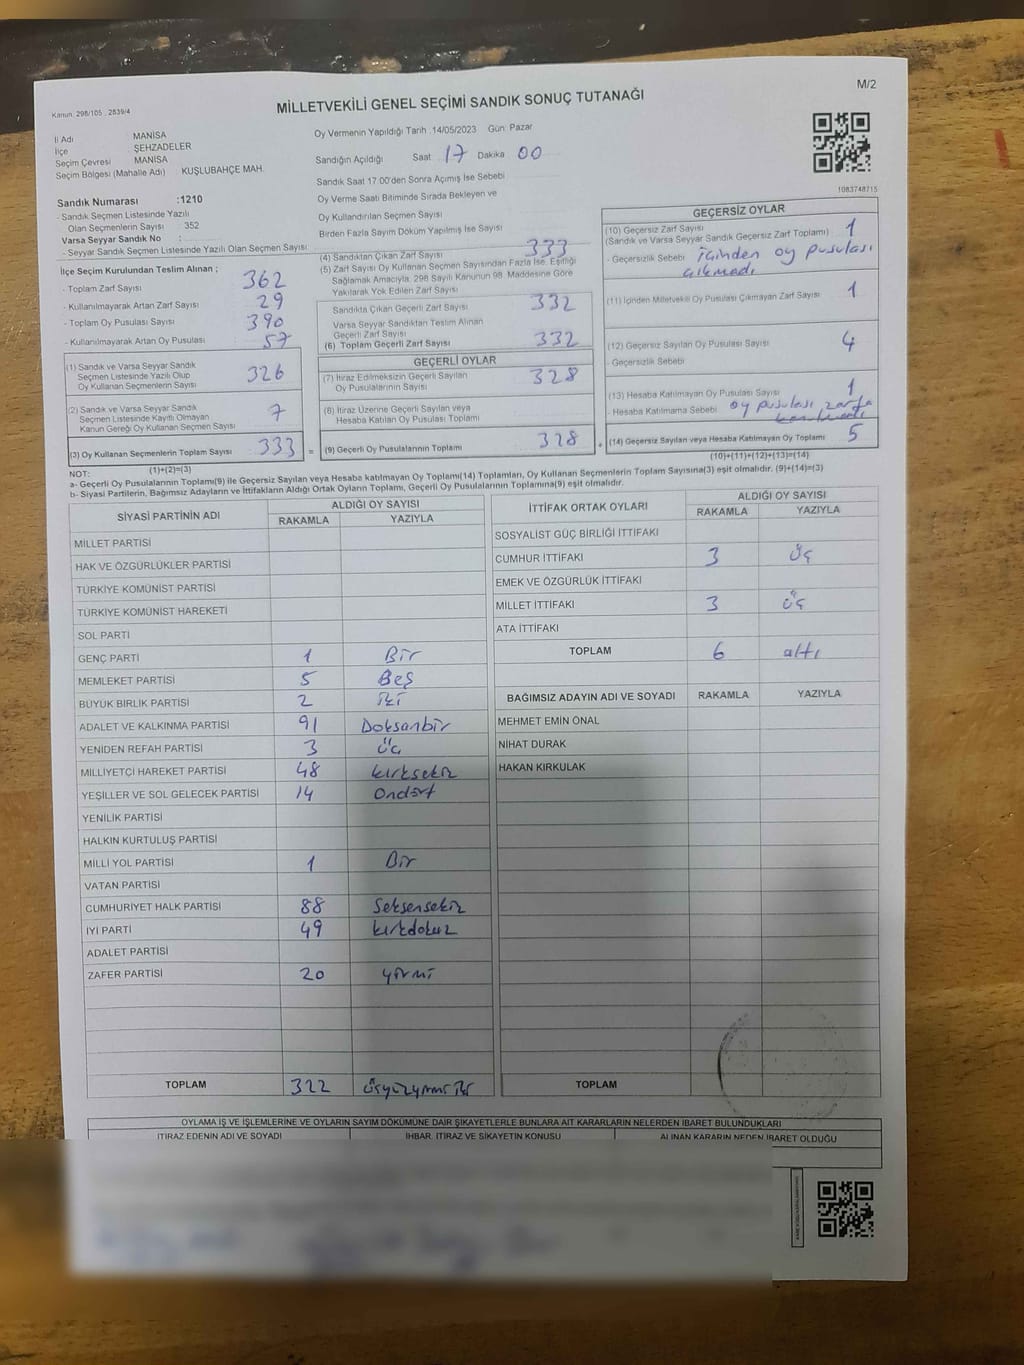 M/2
Kanun: 298/105 , 2839/4
MİLLETVEKİLİ GENEL SEÇİMİ SANDIK SONUÇ TUTANAĞI
İl Adı : MANİSA
İlçe : ŞEHZADELER
Seçim Çevresi : MANİSA
Seçim Bölgesi (Mahalle Adı) KUŞLUBAHÇE MAH.
Sandık Numarası :1210
- Sandık Seçmen Listesinde Yazılı
Olan Seçmenlerin Sayısı : 352
Varsa Seyyar Sandık No :
- Seyyar Sandık Seçmen Listesinde Yazılı Olan Seçmen Sayısı:
İlçe Seçim Kurulundan Teslim Alınan ;
- Toplam Zarf Sayısı 362
- Kullanılmayarak Artan Zarf Sayısı 29
- Toplam Oy Pusulası Sayısı 390
- Kullanılmayarak Artan Oy Pusulası 57
(1) Sandık ve Varsa Seyyar Sandık
Seçmen Listesinde Yazılı Olup
Oy Kullanan Seçmenlerin Sayısı 326
(2) Sandık ve Varsa Seyyar Sandık
Seçmen Listesinde Kayıtlı Olmayan
Kanun Gereği Oy Kullanan Seçmen Sayısı 7
(3) Oy Kullanan Seçmenlerin Toplam Sayısı 333
(1)+(2)=(3)
Oy Vermenin Yapıldığı Tarih :14/05/2023 Gün: Pazar
Sandığın Açıldığı Saat 17 Dakika 00
Sandık Saat 17:00'den Sonra Açımış İse Sebebi
Oy Verme Saati Bitiminde Sırada Bekleyen ve
Oy Kullandırılan Seçmen Sayısı
Birden Fazla Sayım Döküm Yapılmış İse Sayısı
(4) Sandıktan Çıkan Zarf Sayısı 333
(5) Zarf Sayısı Oy Kullanan Seçmen Sayısından Fazla İse, Eşitliği
Sağlamak Amacıyla, 298 Sayılı Kanunun 98. Maddesine Göre
Yakılarak Yok Edilen Zarf Sayısı
Sandıkta Çıkan Geçerli Zarf Sayısı 332
Varsa Seyyar Sandıktan Teslim Alınan
Geçerli Zarf Sayısı
(6) Toplam Geçerli Zarf Sayısı 332
GEÇERLİ OYLAR
(7) İtiraz Edilmeksizin Geçerli Sayılan
Oy Pusulalarının Sayısı 328
(8) İtiraz Üzerine Geçerli Sayılan veya
Hesaba Katılan Oy Pusulası Toplamı
= (9) Geçerli Oy Pusulalarının Toplamı 328
1083748715
GEÇERSİZ OYLAR
(10) Geçersiz Zarf Sayısı 1
(Sandık ve Varsa Seyyar Sandık Geçersiz Zarf Toplamı)
- Geçersizlik Sebebi içinden oy pusulası
çıkmadı
(11) İçinden Milletvekili Oy Pusulası Çıkmayan Zarf Sayısı 1
(12) Geçersiz Sayılan Oy Pusulası Sayısı 4
- Geçersizlik Sebebi
(13) Hesaba Katılmayan Oy Pusulası Sayısı 1
- Hesaba Katılmama Sebebi oy pusulası zarfa
+ (14) Geçersiz Sayılan veya Hesaba Katılmayan Oy Toplamı 5
(10)+(11)+(12)+(13)=(14)
NOT:
a- Geçerli Oy Pusulasının Toplamı(9) ile Geçersiz Sayılan veya Hesaba katılmayan Oy Toplamı(14) Toplamları, Oy Kullanan Seçmenlerin Toplam Sayısına(3) eşit olmalıdır. (9)+(14)=(3)
b- Siyasi Partilerin, Bağımsız Adayların ve İttifakların Aldığı Ortak Oyların Toplamı, Geçerli Oy Pusulalarının Toplamına(9) eşit olmalıdır.
SİYASİ PARTİNİN ADI ALDIĞI OY SAYISI
RAKAMLA YAZIYLA
MİLLET PARTİSİ
HAK VE ÖZGÜRLÜKLER PARTİSİ
TÜRKİYE KOMÜNİST PARTİSİ
TÜRKİYE KOMÜNİST HAREKETİ
SOL PARTİ
GENÇ PARTİ 1 Bir
MEMLEKET PARTİSİ 5 Beş
BÜYÜK BİRLİK PARTİSİ 2 iki
ADALET VE KALKINMA PARTİSİ 91 Doksanbir
YENİDEN REFAH PARTİSİ 3 Üç
MİLLİYETÇİ HAREKET PARTİSİ 48 kırksekiz
YEŞİLLER VE SOL GELECEK PARTİSİ 14 Ondört
YENİLİK PARTİSİ
HALKIN KURTULUŞ PARTİSİ
MİLLİ YOL PARTİSİ 1 Bir
VATAN PARTİSİ
CUMHURİYET HALK PARTİSİ 88 Seksensekiz
İYİ PARTİ 49 kırkdokuz
ADALET PARTİSİ
ZAFER PARTİSİ 20 yirmi
TOPLAM 322 üçyüzyirmi iki
İTTİFAK ORTAK OYLARI ALDIĞI OY SAYISI
RAKAMLA YAZIYLA
SOSYALİST GÜÇ BİRLİĞİ İTTİFAKI
CUMHUR İTTİFAKI 3 üç
EMEK VE ÖZGÜRLÜK İTTİFAKI
MİLLET İTTİFAKI 3 üç
ATA İTTİFAKI
TOPLAM 6 altı
BAĞIMSIZ ADAYIN ADI VE SOYADI RAKAMLA YAZIYLA
MEHMET EMİN ÖNAL
NİHAT DURAK
HAKAN KIRKULAK
TOPLAM
OYLAMA İŞ VE İŞLEMLERİNE VE OYLARIN SAYIM DÖKÜMÜNE DAİR ŞİKAYETLERLE BUNLARA AİT KARARLARIN NELERDEN İBARET BULUNDUKLARI
İTİRAZ EDENİN ADI VE SOYADI İHBAR, İTİRAZ VE ŞİKAYETİN KONUSU ALINAN KARARIN NEDEN İBARET OLDUĞU